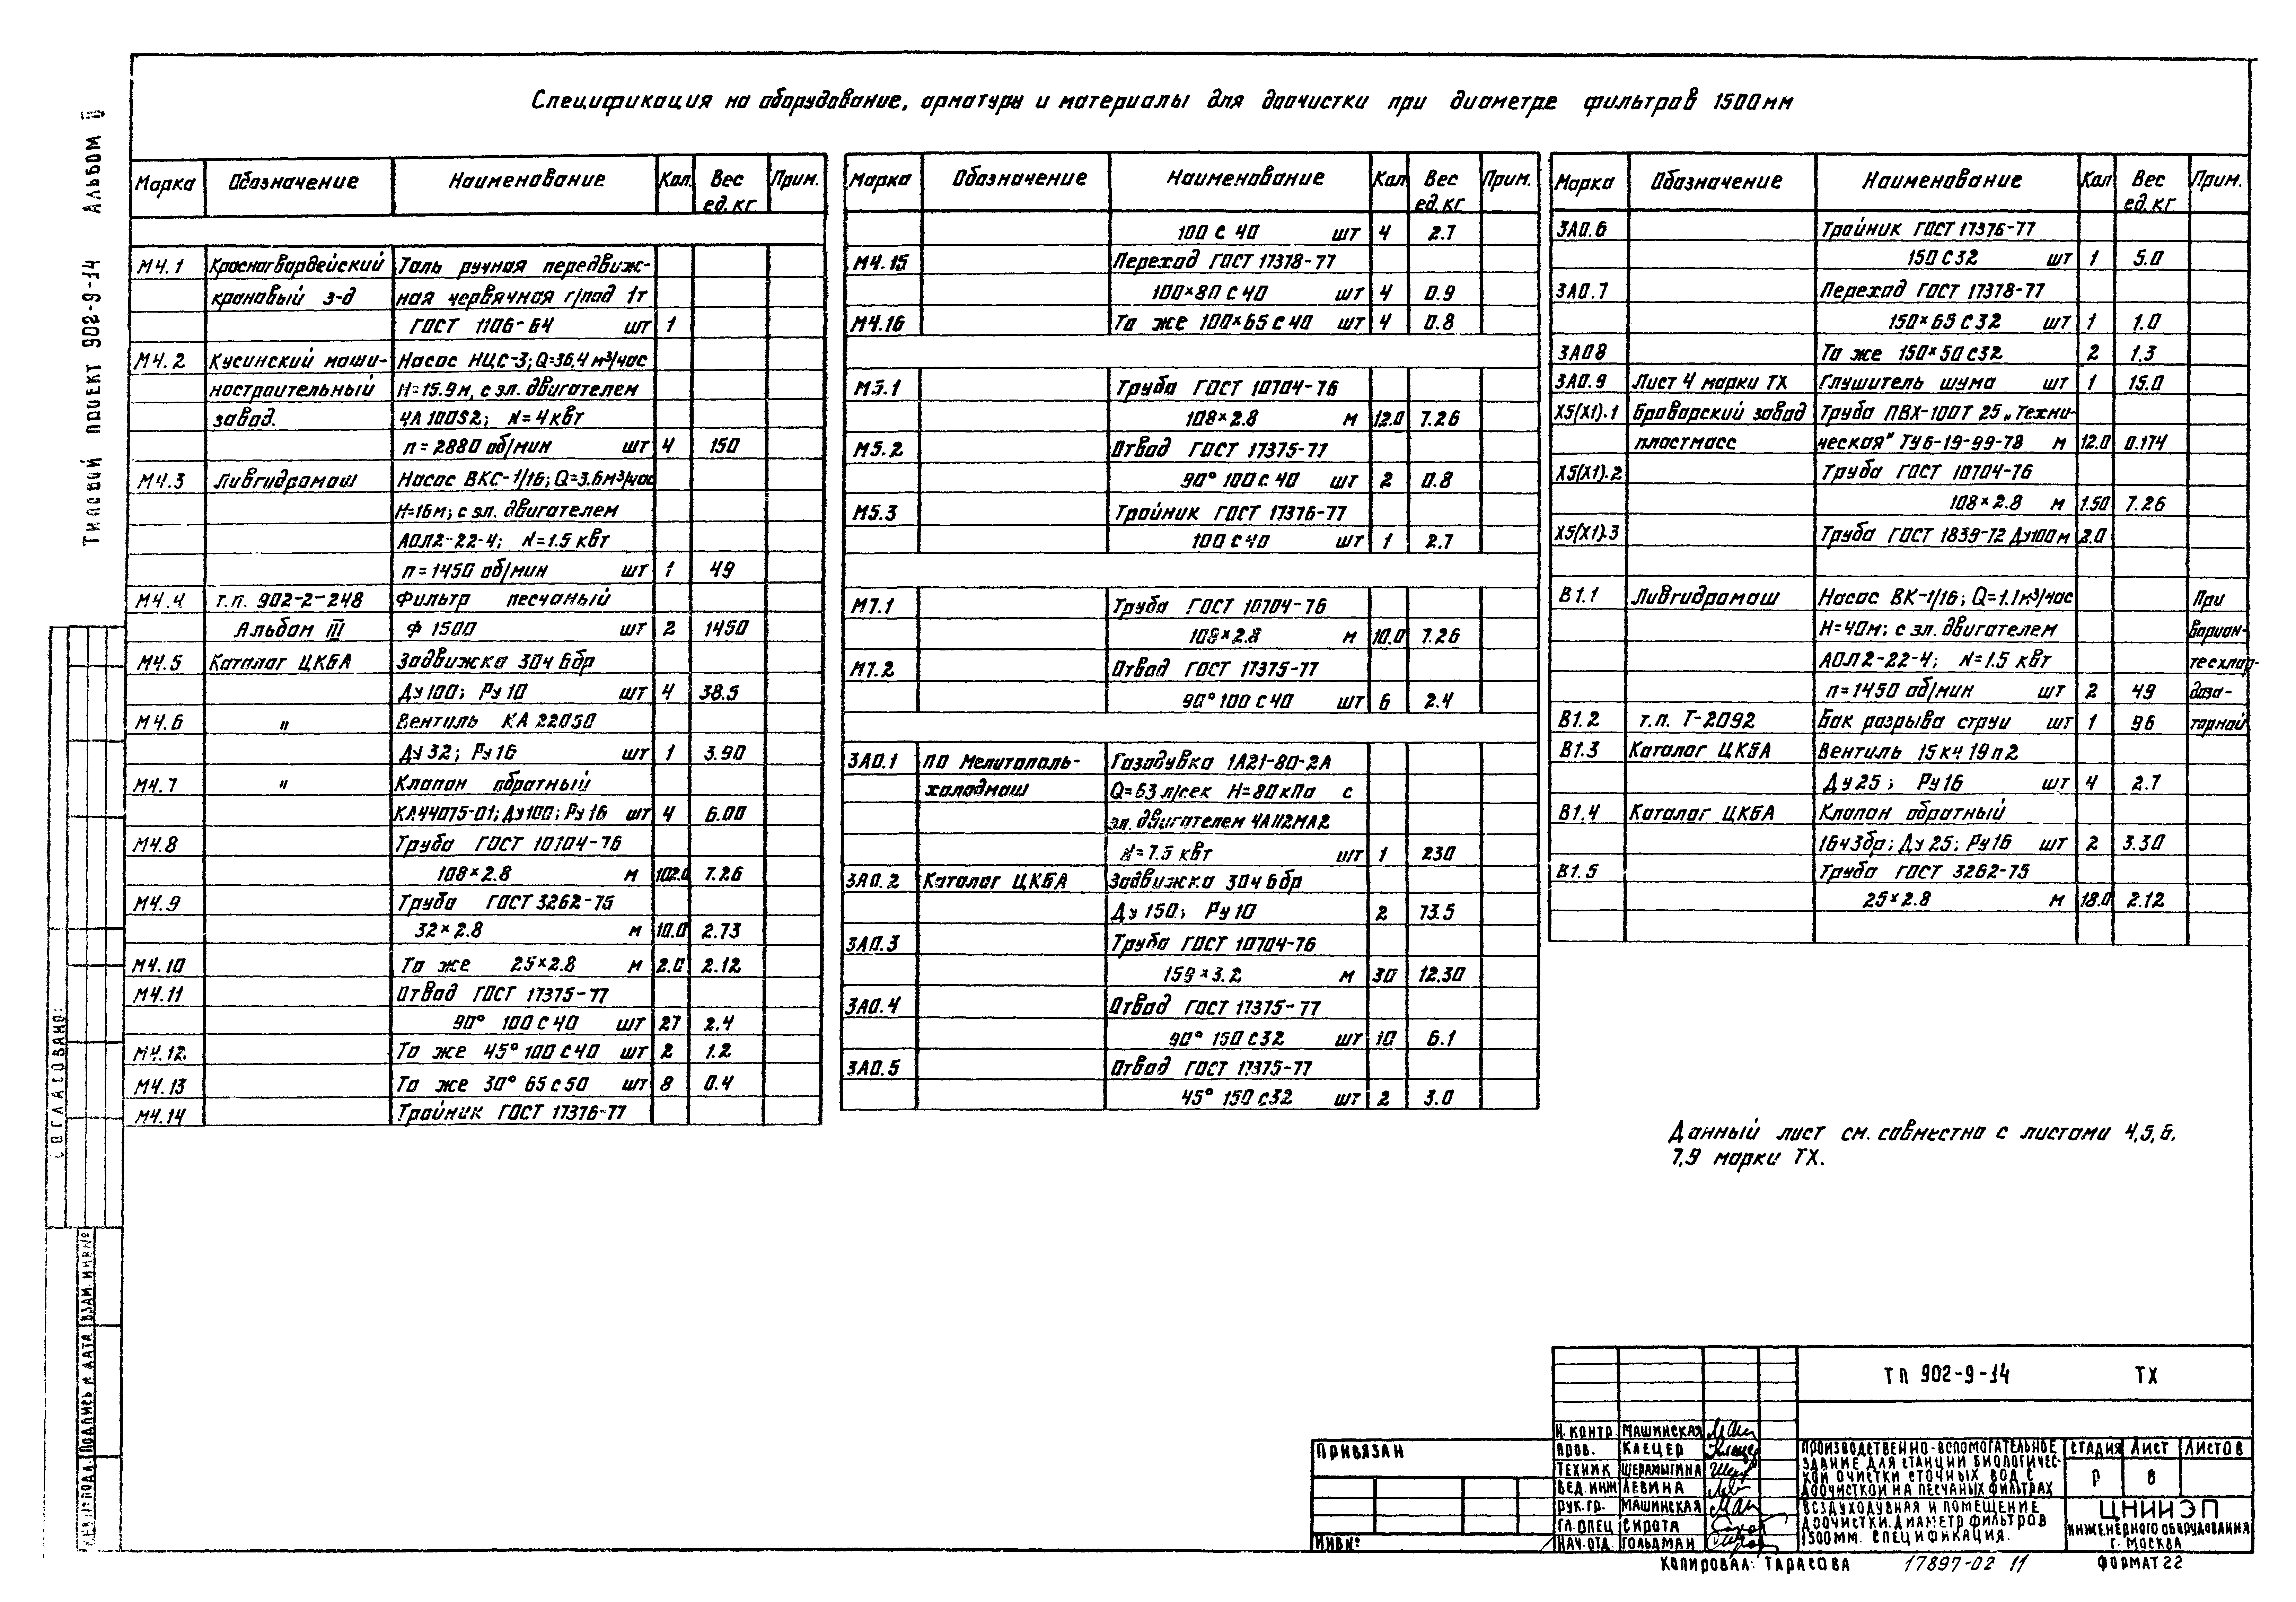 Спецификация на оборудование, арматуру и материалы для доочистки при диаметре фильтров 1500мм
Типовой проект 902-9-14 Альбом II
Марка Обозначение Наименование Кол. Вес ед.кг Прим.
М4.1 Красногвардейский Таль ручная передвиж-
крановый з-д ная червячная г/под 1т
ГОСТ 1106-64 шт 1
М4.2 Кусинский маши- Насос НЦС-3; Q=36.4 м³/час
ностроительный Н=15.9м, с эл. двигателем
завод. 4А 100S2; N=4квт
n=2880 об/мин шт 4 150
М4.3 Ливгидромаш Насос ВКС-1/16; Q=3.6м³/час
Н=16м; с эл. двигателем
АОЛ2-22-4; N=1.5 квт
n=1450 об/мин шт 1 49
М4.4 т.п. 902-2-248 Фильтр песчаный
Альбом III ф 1500 шт 2 1450
М4.5 Каталог ЦКБА Задвижка 30ч 6бр
Ду100; Ру10 шт 4 38.5
М4.6 " Вентиль КА 22050
Ду 32; Ру16 шт 1 3.90
М4.7 " Клапан обратный
КА44075-01; Ду100; Ру16 шт 4 6.00
М4.8 Труба ГОСТ 10704-76
108×2.8 м 102.0 7.26
М4.9 Труба ГОСТ 3262-75
32×2.8 м 10.0 2.73
М4.10 То же 25×2.8 м 2.0 2.12
М4.11 Отвод ГОСТ 17375-77
90° 100 с 40 шт 27 2.4
М4.12 То же 45° 100 с40 шт 2 1.2
М4.13 То же 30° 65 с50 шт 8 0.4
М4.14 Тройник ГОСТ 17376-77
Марка Обозначение Наименование Кол Вес ед.кг Прим.
100 с 40 шт 4 2.7
М4.15 Переход ГОСТ 17378-77
100×80 с 40 шт 4 0.9
М4.16 То же 100×65 с 40 шт 4 0.8
М5.1 Труба ГОСТ 10704-76
108×2.8 м 12.0 7.26
М5.2 Отвод ГОСТ 17375-77
90° 100 с 40 шт 2 0.8
М5.3 Тройник ГОСТ 17376-77
100 с40 шт 1 2.7
М7.1 Труба ГОСТ 10704-76
108×2.8 м 10.0 7.26
М7.2 Отвод ГОСТ 17375-77
90° 100 с 40 шт 6 2.4
ЗА0.1 ПО Мелитополь- Газодувка 1А21-80-2А
холодмаш Q=63 л/сек Н=80кПа с
эл. двигателем 4А112МА2
N=7.5 квт шт 1 230
ЗА0.2 Каталог ЦКБА Задвижка 30ч 6бр
Ду 150; Ру 10 2 73.5
ЗА0.3 Труба ГОСТ 10704-76
159×3.2 м 30 12.30
ЗА0.4 Отвод ГОСТ 17375-77
90° 150 с32 шт 10 6.1
ЗА0.5 Отвод ГОСТ 17375-77
45° 150 с32 шт 2 3.0
Марка Обозначение Наименование Кол Вес ед.кг Прим.
ЗА0.6 Тройник ГОСТ 17376-77
150 с 32 шт 1 5.0
ЗА0.7 Переход ГОСТ 17378-77
150×65 с 32 шт 1 1.0
ЗА08 То же 150×50 с32 2 1.3
ЗА0.9 Лист 4 марки ТХ Глушитель шума шт 1 15.0
Х5(Х1).1 Броварский завод Труба ПВХ-100Т 25 „Техни-
пластмасс ческая" ТУ6-19-99-78 м 12.0 0.174
Х5(Х1).2 Труба ГОСТ 10704-76
108×2.8 м 1.50 7.26
Х5(Х1).3 Труба ГОСТ 1839-72 Ду100 м 2.0
В1.1 Ливгидромаш Насос ВК-1/16; Q=1.1м³/час При
Н=40м; с эл. двигателем вариан-
АОЛ2-22-4; N=1.5 квт те схлор-
n=1450 об/мин шт 2 49 доза-
В1.2 т.п. Т-2092 Бак разрыва струи шт 1 96 торной
В1.3 Каталог ЦКБА Вентиль 15кч 19п2
Ду25; Ру16 шт 4 2.7
В1.4 Каталог ЦКБА Клапан обратный
16ч3бр; Ду 25; Ру16 шт 2 3.30
В1.5 Труба ГОСТ 3262-75
25×2.8 м 18.0 2.12
Данный лист см. совместно с листами 4,5,6,
7,9 марки ТХ.
СОГЛАСОВАНО:
ИНВ.№ ПОДЛ. ПОДПИСЬ И ДАТА ВЗАМ. ИНВ.№
ПРИВЯЗАН
ИНВ.№
ТП 902-9-14 ТХ
Н. КОНТР МАШИНСКАЯ
ПРОВ. КЛЕЦЕР
ТЕХНИК ШЕРАМЫГИНА
ВЕД.ИНЖ ЛЕВИНА
РУК.ГР. МАШИНСКАЯ
ГЛ.СПЕЦ СИРОТА
НАЧ.ОТД. ГОЛЬДМАН
ПРОИЗВОДСТВЕННО-ВСПОМОГАТЕЛЬНОЕ
ЗДАНИЕ ДЛЯ СТАНЦИИ БИОЛОГИЧЕС-
КОЙ ОЧИСТКИ СТОЧНЫХ ВОД С
ДООЧИСТКОЙ НА ПЕСЧАНЫХ ФИЛЬТРАХ
ВОЗДУХОДУВНАЯ И ПОМЕЩЕНИЕ
ДООЧИСТКИ. ДИАМЕТР ФИЛЬТРОВ
1500ММ. СПЕЦИФИКАЦИЯ.
СТАДИЯ ЛИСТ ЛИСТОВ
Р 8
ЦНИИЭП
ИНЖЕНЕРНОГО ОБОРУДОВАНИЯ
Г. МОСКВА
КОПИРОВАЛ: ТАРАСОВА 17897-02 11 ФОРМАТ 22